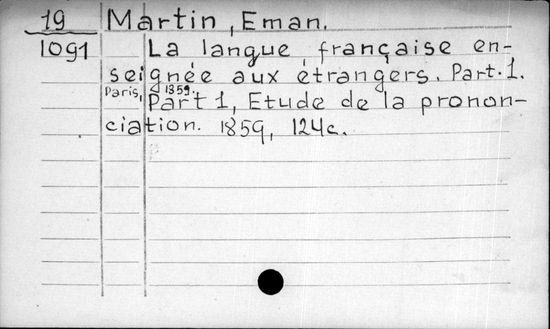 19 Martin, Eman.
1091 La langue française en-
seignée aux étrangers. Part. 1.
Paris, 1859.
Part 1, Etude de la pronon-
ciation. 1859, 124c.